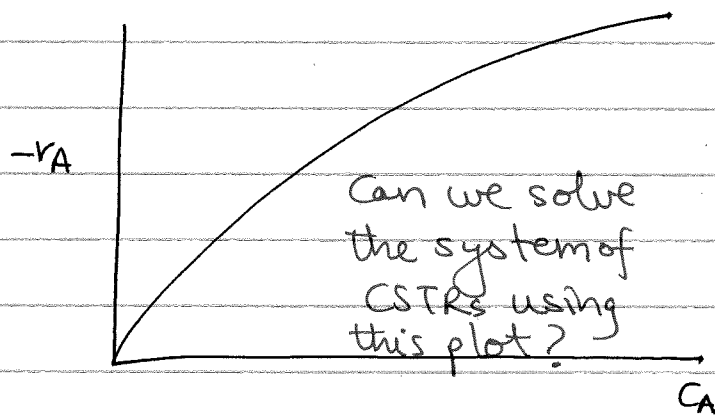 -rA
Can we solve
the system of
CSTRs using
this plot?
CA